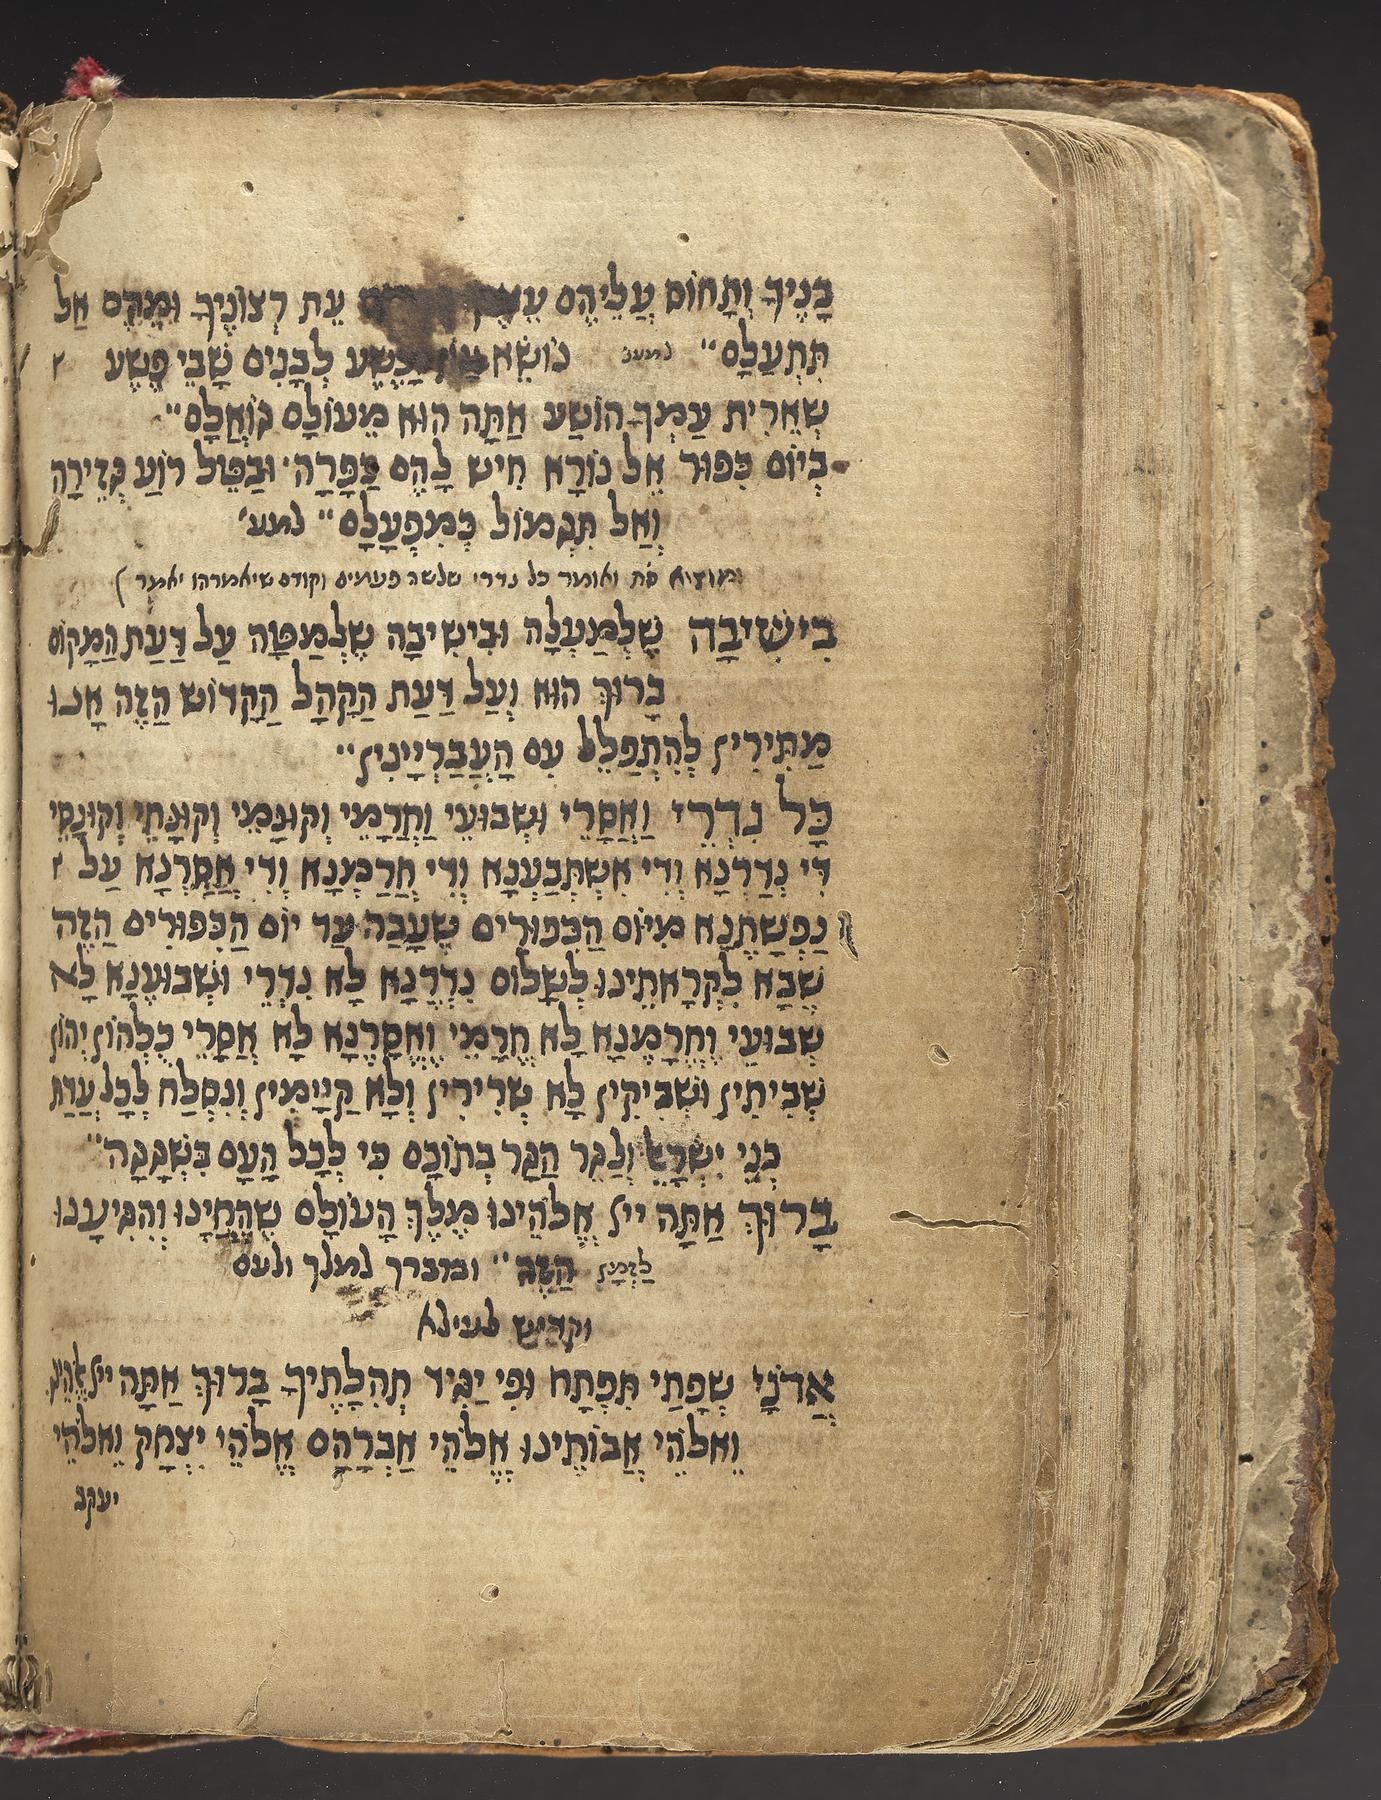 בָּנֶיךָ וְתָחוֹס עֲלֵיהֶם עֵת רְצוֹנֶיךָ וּמֶנְהֶם אַל
תִּתְעַלָּם׳׳ למענ נוֹשֵׂא עָוֹן וָפֶשַׁע לְבָנִים שָׁבֵי פֶשַׁע
שְׁאֵרִית עַמְּךָ הוֹשַׁע אַתָּה הוּא מֵעוֹלָם גּוֹאֲלָם׳׳
בְּיוֹם כִּפּוּר אֵל נוֹרָא חִישׁ לָהֶם כַּפָּרָה׳ וּבַטֵּל רוֹעַ גְּזֵירָה
וְאַל תִּגְמוֹל כְּמִפְעָלָם׳׳ למע׳
ומוציא ס״ת ואומר כל נדרי שלשה פעמים וקודם שיאמרהו יאמר
בִּישִׁיבָה שֶׁלְּמַעְלָה וּבִישִׁיבָה שֶׁלְּמַטָּה עַל דַּעַת הַמָּקוֹם
בָּרוּךְ הוּא וְעַל דַּעַת הַקָּהָל הַקָּדוֹשׁ הַזֶּה אָנוּ
מַתִּירִין לְהִתְפַּלֵּל עִם הָעֲבַרְיָינִין׳׳
כָּל נִדְרֵי וַאֲסָרֵי וּשְׁבוּעֵי וַחֲרָמֵי וְקוּנָמֵי וְקוּנָחֵי וְקוּנָסֵי
דִּי נְדַרְנָא וְדִי אִשְׁתְּבַעְנָא וְדִי חֲרַמְנָא וְדִי אֲסַרְנָא עַל
נַפְשָׁתָנָא מִיּוֹם הַכִּפּוּרִים שֶׁעָבַר עַד יוֹם הַכִּפּוּרִים הַזֶּה
שֶׁבָּא לִקְרָאתֵינוּ לְשָׁלוֹם נִדְרָנָא לָא נִדְרֵי וּשְׁבוּעָנָא לָא
שְׁבוּעֵי וַחֲרָמָנָא לָא חֲרָמֵי וֶאֱסָרָנָא לָא אֲסָרֵי כֻּלְּהוֹן יְהוֹן
שְׁבִיתִין וּשְׁבִיקִין לָא שְׁרִירִין וְלָא קַיָּימִין וְנִסְלַח לְכָל עֲדַת
בְּנֵי יִשְׂרָאֵל וְלַגֵּר הַגָּר בְּתוֹכָם כִּי לְכָל הָעָם בִּשְׁגָגָה׳׳
בָּרוּךְ אַתָּה ייָ אֱלֹהֵינוּ מֶלֶךְ הָעוֹלָם שֶׁהֶחֱיָנוּ וְהִגִּיעָנוּ
לַזְּמַן הַזֶּה׳׳ ומברך למלך ולעם
וקדיש לעילא
אֲדֹנָי שְׂפָתַי תִּפְתָּח וּפִי יַגִּיד תְּהִלָּתֶיךָ בָּרוּךְ אַתָּה ייָ אֱלֹהֵינוּ
וֵאלֹהֵי אֲבוֹתֵינוּ אֱלֹהֵי אַבְרָהָם אֱלֹהֵי יִצְחָק וֵאלֹהֵי
יעקב